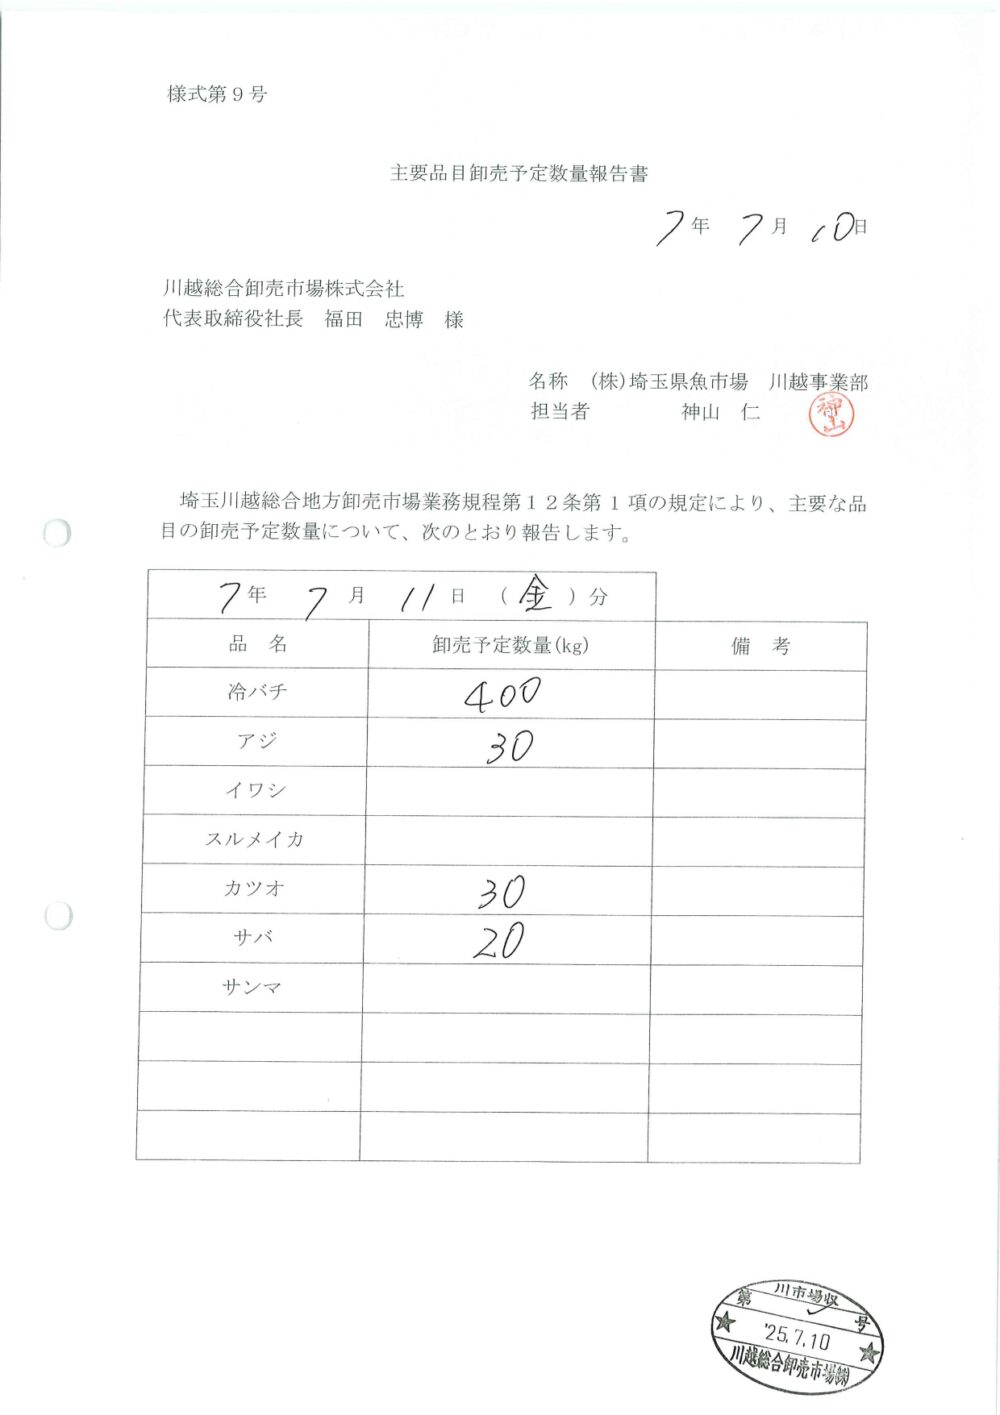 様式第９号
主要品目卸売予定数量報告書
7年 7月 10日
川越総合卸売市場株式会社
代表取締役社長 福田 忠博 様
名称 (株)埼玉県魚市場 川越事業部
担当者 神山 仁
神山
埼玉川越総合地方卸売市場業務規程第１２条第１項の規定により、主要な品
目の卸売予定数量について、次のとおり報告します。
7年 7月 11日 (金)分
品 名 卸売予定数量(kg) 備 考
冷バチ 400
アジ 30
イワシ
スルメイカ
カツオ 30
サバ 20
サンマ
川市場収
第 号
'25.7.10
川越総合卸売市場㈱